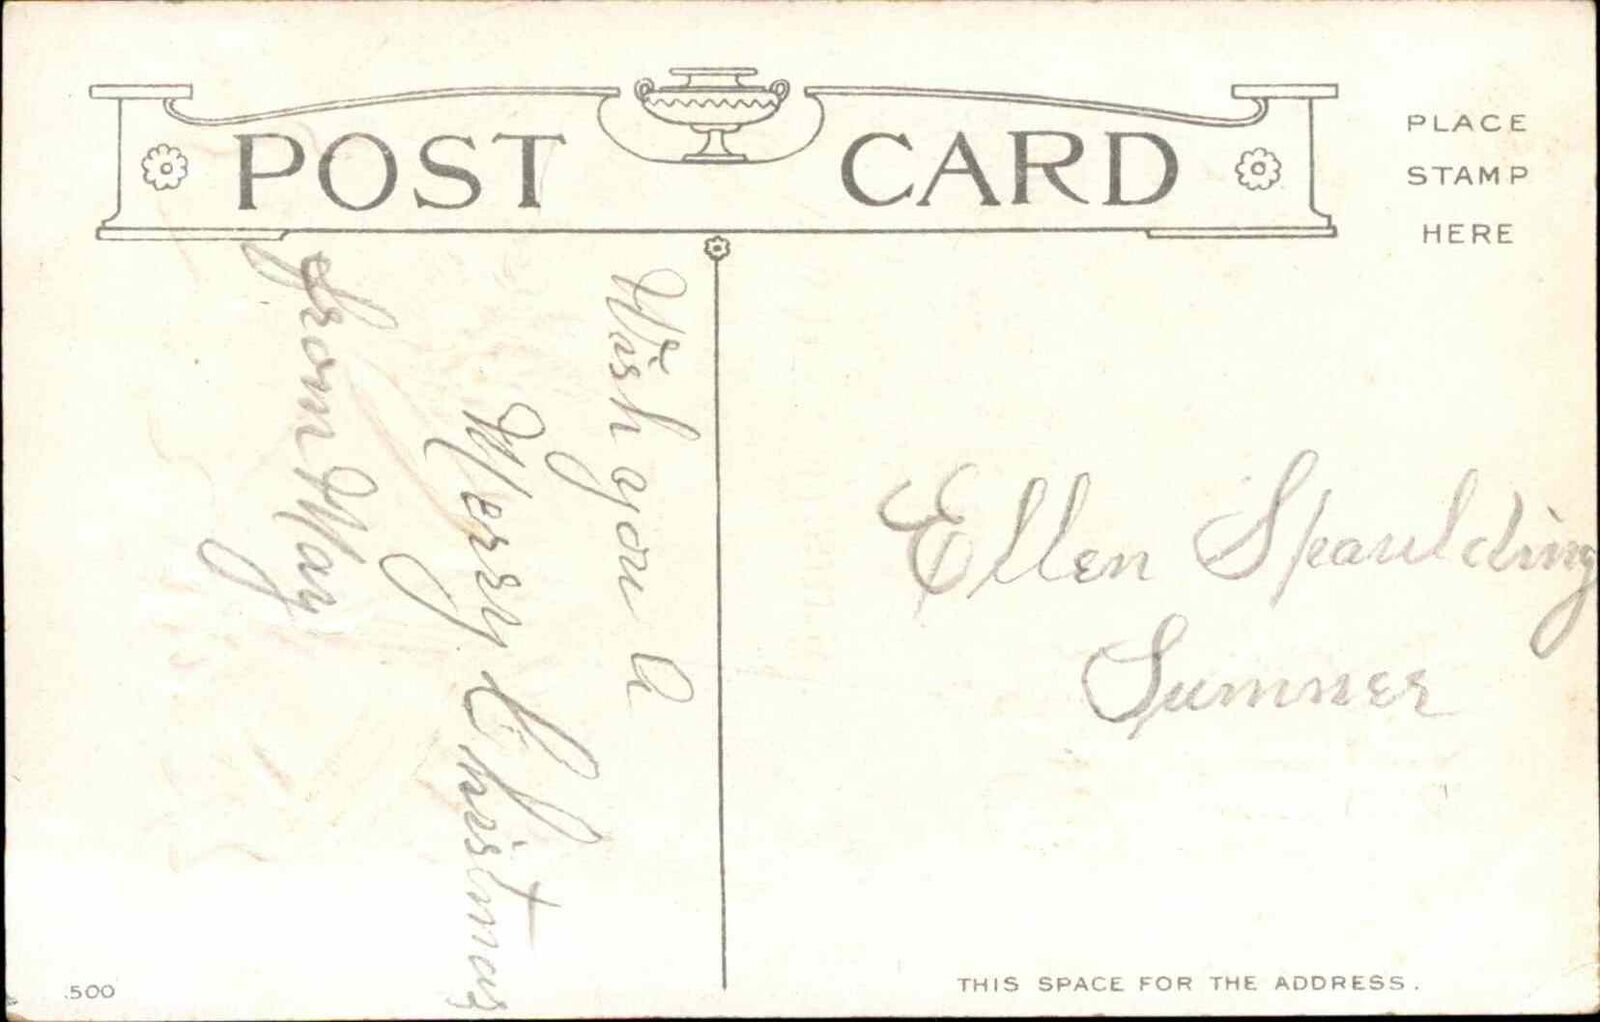 POST CARD
PLACE
STAMP
HERE
Wish you a
Merry Christmas
from May
Ellen Spaulding
Sumner
500
THIS SPACE FOR THE ADDRESS.